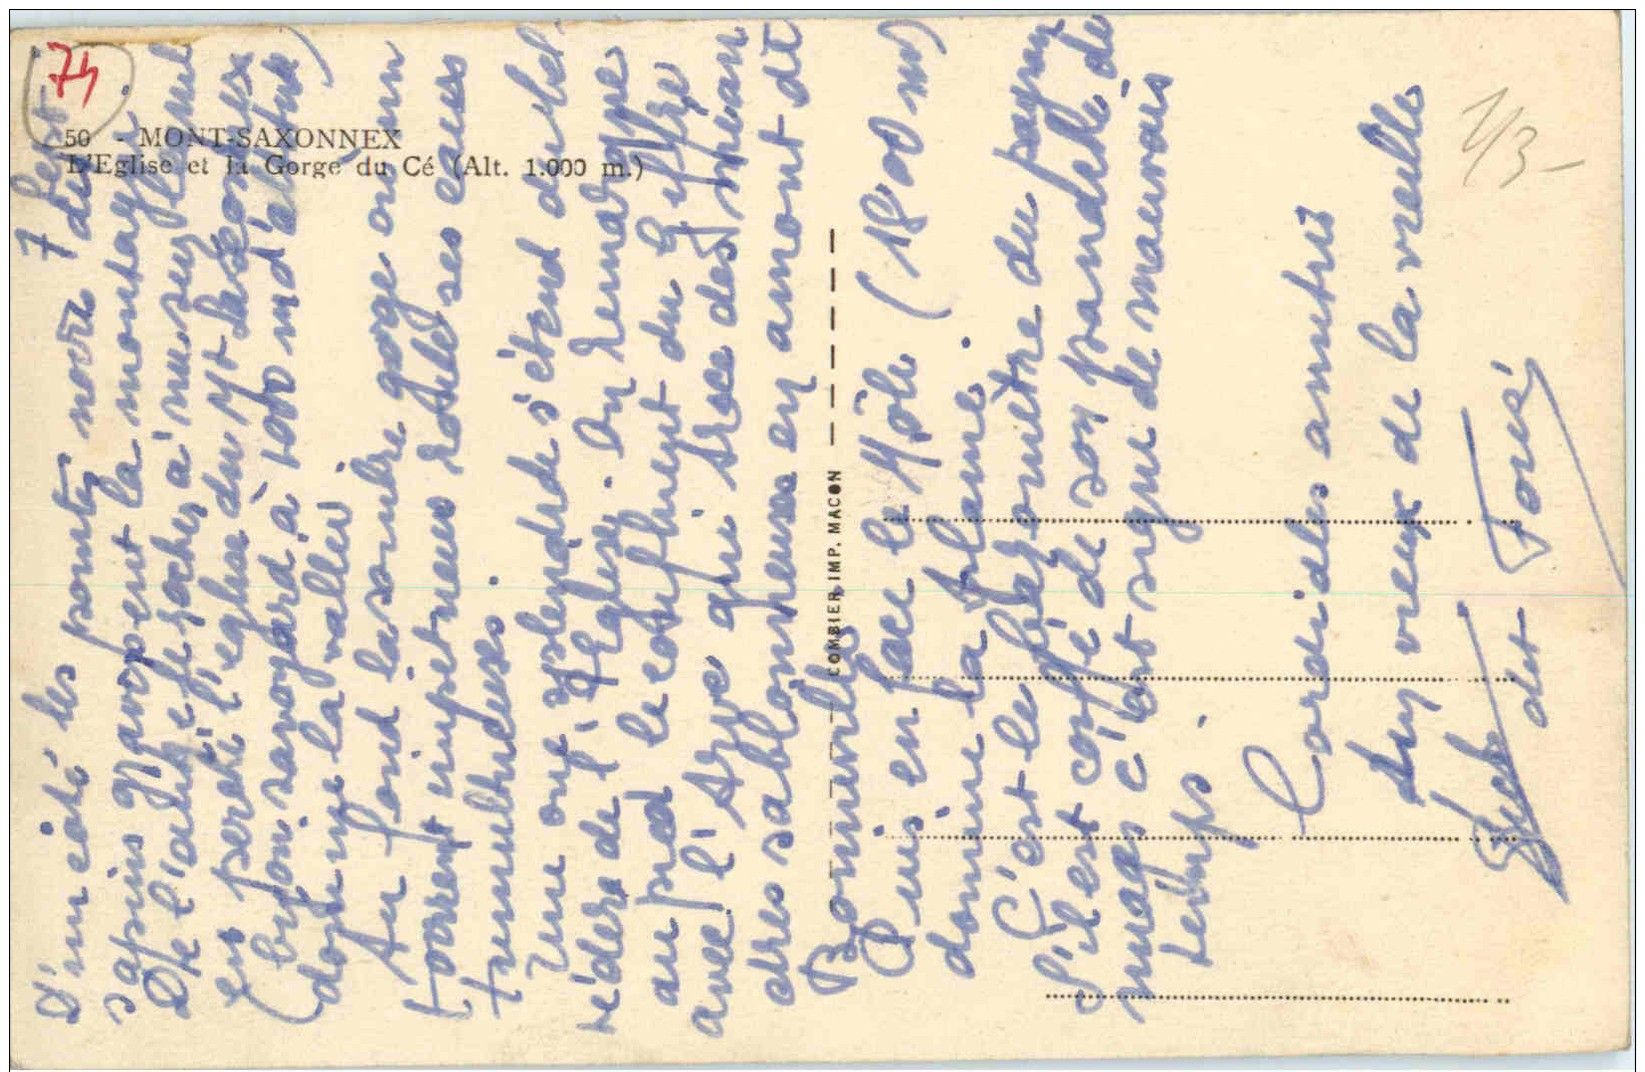 74
50 - MONT-SAXONNEX
L'Eglise et la Gorge du Cé (Alt. 1.000 m.)
1/3-
COMBIER IMP. MACON
7 Sept
D'un côté les pointes noires des
sapins grimpent la montagne
De l'autre le rocher, à nu surplombe
En perché l'eglise du Mt Saxonnex
(bijou savoyard à 1000 m d'altitude)
domine la vallée
Au fond la sombre gorge où un
torrent impetueux roule ses eaux
tumultueuses.
Une vue splendide s'étend du bel
védère de l'Eglise. On remarque
au pied le confluent du Giffre
avec l'Arve qui trace des méan
dres sablonneux en amont de
Bonneville
Puis en face le Môle (1800 m)
domine la plaine.
C'est le baromètre du pays
S'il est coiffé de son panache de
nuages c'est signe de mauvais
temps.
Cordiales amitiés
du vieux de la vieille
dit Toné